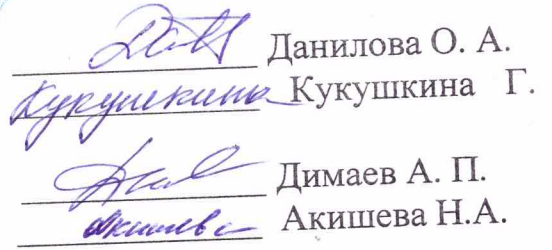 Данилова О. А.
Кукушкина Кукушкина Г.
Димаев А. П.
Акишева Акишева Н.А.